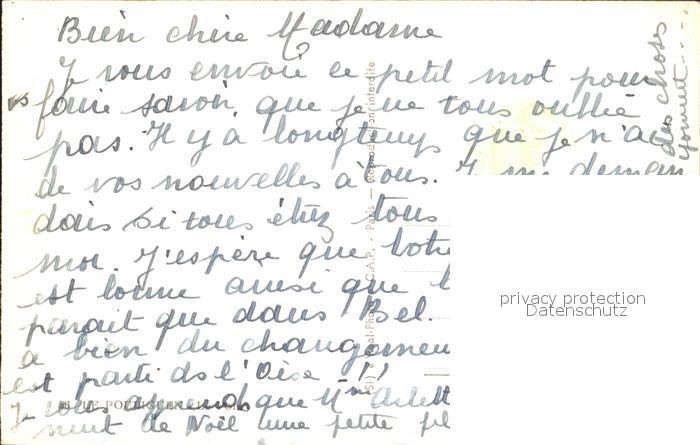 Bien chère Madame
Je vous envoie ce petit mot pour
vs faire savoir que je ne vous oublie
pas. Il y a longtemps que je n'ai
de vos nouvelles à tous. Je me deman
dais si vous étiez tous
mot. J'espère que votre
est bonne ainsi que
parait que dans Bel.
a bien du changemen
est parti ds l'Oise !!
Je vous apprends que Mme Arlett
ment de Noël une petite
des choses
C.A.P. - Paris - Reproduction interdite
privacy protection
Datenschutz